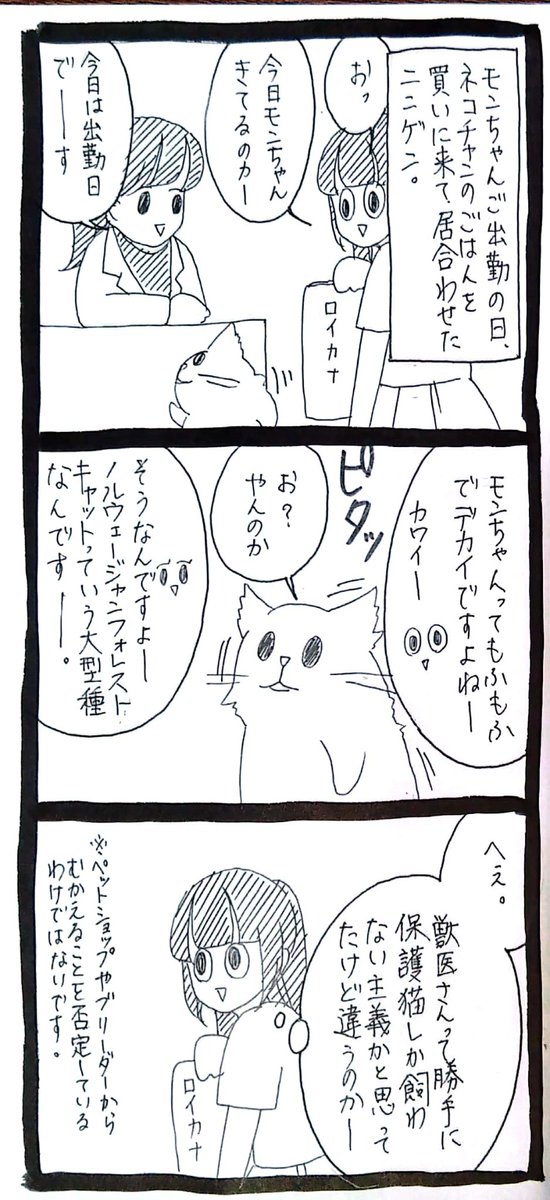 モンちゃんご出勤の日、
ネコチャンのごはんを
買いに来て、居合わせた
ニンゲン。
おっ
今日モンちゃん
きてるのカー
今日は出勤日
でーーす
ロイカナ
モンちゃんってもふもふ
でデカイですよねー
カワイー
ピタッ
お？
やんのか
そうなんですよー
ノルウェージャンフォレスト
キャットっていう大型種
なんですーー。
へぇ。
獣医さんって勝手に
保護猫しか飼わ
ない主義かと思って
たけど違うのカー
ロイカナ
※ペットショップやブリーダーから
むかえることを否定している
わけではないです。